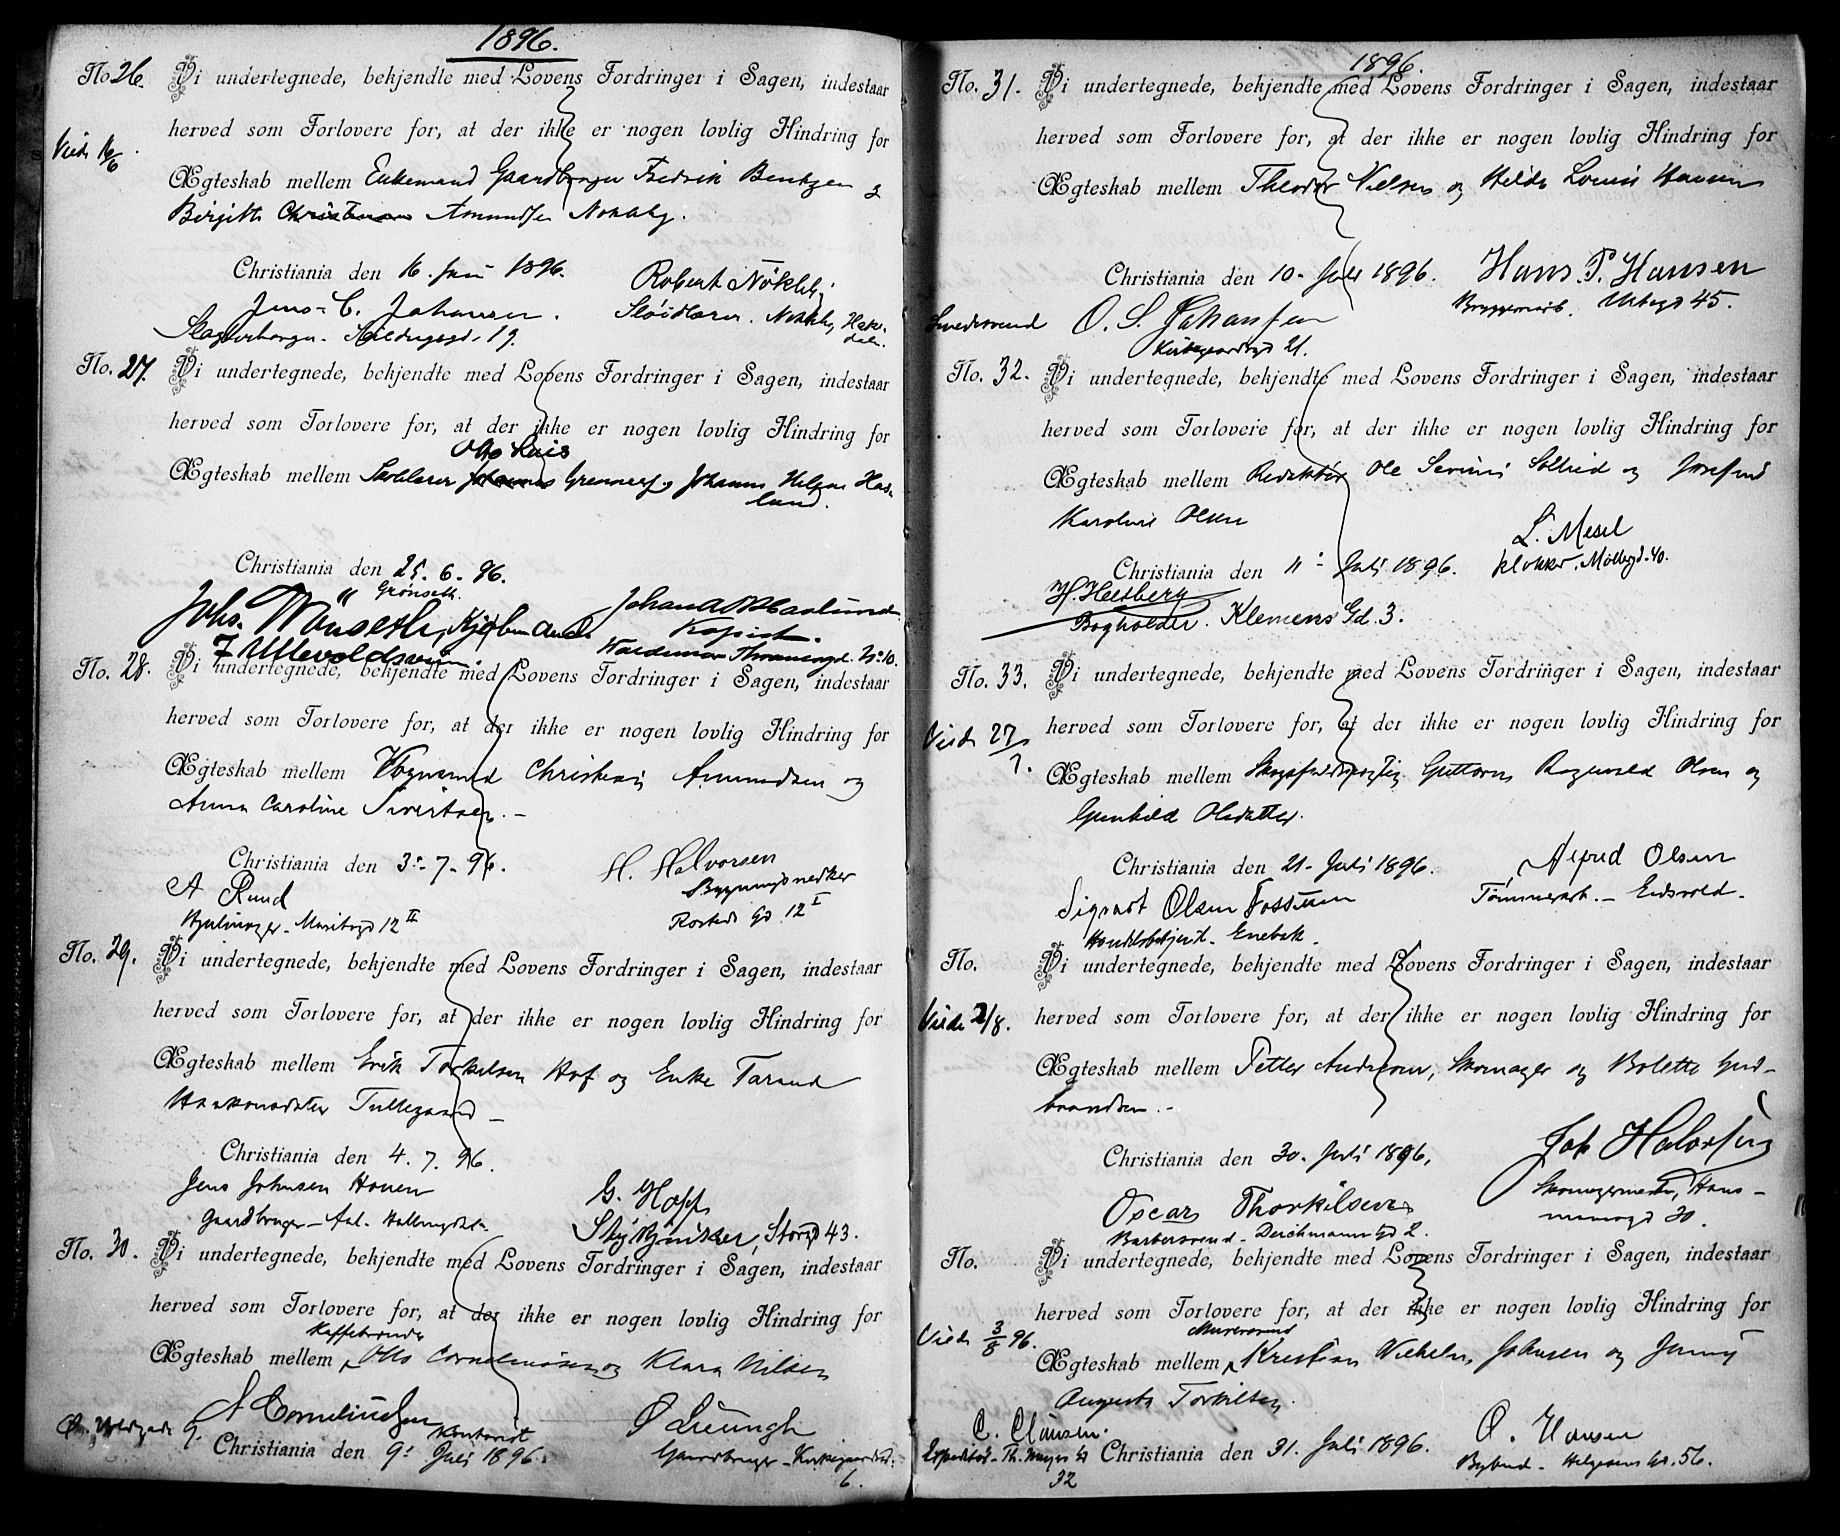 1896.
No 26. Vi undertegnede, bekjendte med Lovens Fordringer i Sagen, indestaar
herved som Forlovere for, at der ikke er nogen lovlig Hindring for
Viede 16/6
Ægteskab mellem Enkemand Gaardbruger Fredrik Bentzen &
Birgitte Amundsen Nökleby.
Christiania den 16. Juni 1896.
Robert Nökleby
Jens C. Johansen.
Sløidlærer. Nökleby, Hakedalen.
19.
No. 27. Vi undertegnede, bekjendte med Lovens Fordringer i Sagen, indestaar
herved som Forlovere for, at der ikke er nogen lovlig Hindring for
Otto Luis
Ægteskab mellem Johannes og Johanne Helene Haslund.
Christiania den 25. 6. 96.
Grönseth.
Johs. Grönseth, Kjøbmand
Johan Haslund
Kopist.
7 Ullevoldsveien.
Waldemar Thranesgd. No 10.
No. 28. Vi undertegnede, bekjendte med Lovens Fordringer i Sagen, indestaar
herved som Forlovere for, at der ikke er nogen lovlig Hindring for
Ægteskab mellem Vognmand Christian Amundsen og
Anna Caroline Sivertsen. -
Christiania den 3-7-96.
H. Halvorsen
A Ruud
Bygningssnedker
Maribogd 12 II
Rosteds Gd. 12 I
No. 29. Vi undertegnede, bekjendte med Lovens Fordringer i Sagen, indestaar
herved som Forlovere for, at der ikke er nogen lovlig Hindring for
Ægteskab mellem Erik Torkelsen Hof og Enke Tarand
Haakonsdatter Tullegaard -
Christiania den 4. 7. 96.
Jens Johnsen Hoven
G. Hoff
Gaardbruger - Aal. Hallingdal.
Storgd 43.
No. 30. Vi undertegnede, bekjendte med Lovens Fordringer i Sagen, indestaar
herved som Forlovere for, at der ikke er nogen lovlig Hindring for
Kaffebrænder
Ægteskab mellem Otto Corneliussen og Klara Nilsen
A Corneliussen
Kontorist
Christiania den 9. Juli 1896.
Gaardbruger - Kirkegaardsgd.
6.
1896.
No. 31. Vi undertegnede, bekjendte med Lovens Fordringer i Sagen, indestaar
herved som Forlovere for, at der ikke er nogen lovlig Hindring for
Ægteskab mellem Theodor Nielsen og Hilda Lovise Hansen
Christiania den 10. Juli 1896.
Hans. P. Hansen
Bryggeriarb. Urtegd 45.
Smedesvend O. S. Johansen
Kirkegaardsgd 21.
No. 32. Vi undertegnede, bekjendte med Lovens Fordringer i Sagen, indestaar
herved som Forlovere for, at der ikke er nogen lovlig Hindring for
Ægteskab mellem Redaktør Ole Severin Solheid og Josefine
Karoline Olsen
L. Mesel
Christiania den 11- Juli 1896.
klokker. Møllegd. 40.
H. Heesberg
Bogholder. Klemens Gd. 3.
No. 33. Vi undertegnede, bekjendte med Lovens Fordringer i Sagen, indestaar
herved som Forlovere for, at der ikke er nogen lovlig Hindring for
Viede 27/7.
Ægteskab mellem Guttorm Ragnvald Olsen og
Gunhild Olsdatter.
Christiania den 21. Juli 1896.
Alfred Olsen
Tømmerarb. - Eidsvold -
Sigvart Olsen Fossum
Handelsbetjent. Enebak.
No. Vi undertegnede, bekjendte med Lovens Fordringer i Sagen, indestaar
Viede 2/8.
herved som Forlovere for, at der ikke er nogen lovlig Hindring for
Ægteskab mellem Petter Andersen, Skomager og Bolette Gud-
brandsen. -
Christiania den 30. Juli 1896.
Joh Halvorsen
Skomagermester, Haus-
mansgd 30.
Oscar Thorkilsen
Barbersvend - Deichmanns Gd 2.
No. Vi undertegnede, bekjendte med Lovens Fordringer i Sagen, indestaar
herved som Forlovere for, at der ikke er nogen lovlig Hindring for
Viede 3/8 96.
Murersvend
Ægteskab mellem Kristian Vilhelm Johnsen og Jenny
Augusta Torkilsen.
C. Clausen.
O. Hansen
Expeditør - Th. Meyers Gd
32
Christiania den 31. Juli 1896.
Bybud - Helgesens Gd. 56.